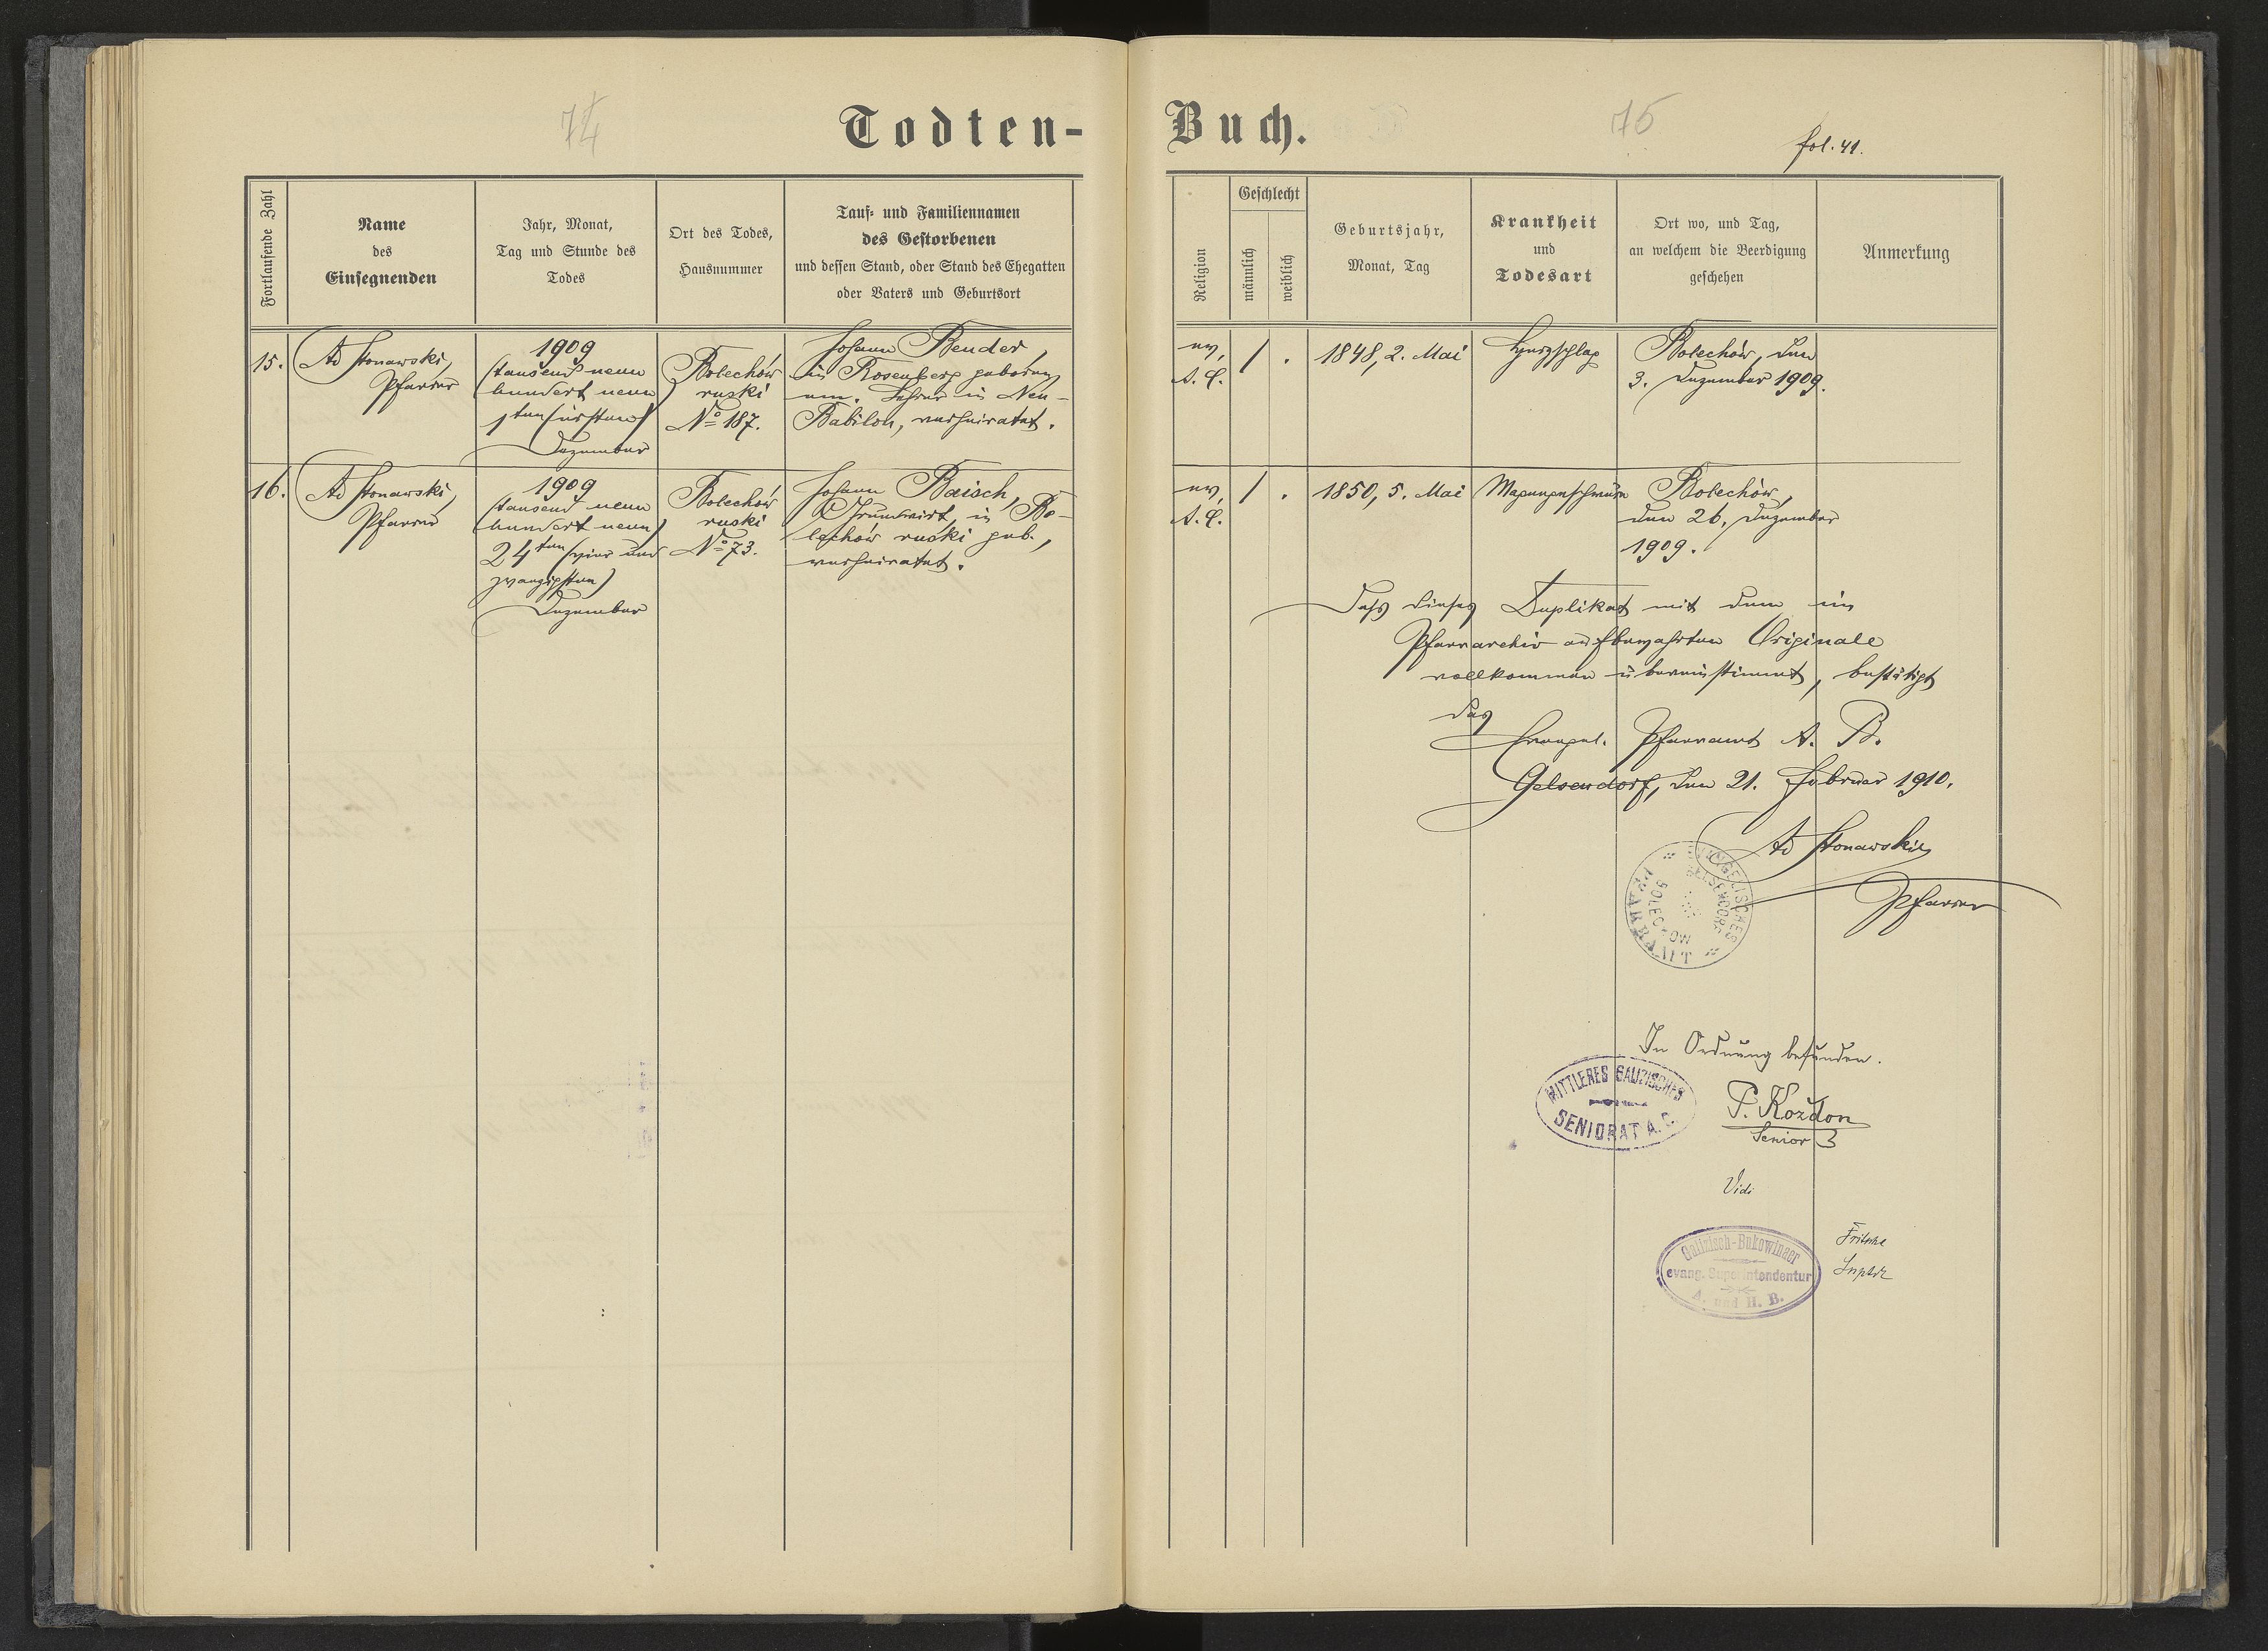 74
Todten-
Fortlaufende Zahl
Name
des
Einsegnenden
Jahr, Monat,
Tag und Stunde des
Todes
Ort des Todes,
Hausnummer
Tauf- und Familiennamen
des Gestorbenen
und dessen Stand, oder Stand des Ehegatten
oder Vaters und Geburtsort
15.
Ad Stonawski,
Pfarrer
1909
(tausend neun
hundert neun)
1ten (ersten)
Dezember
Bolechów
ruski
No 187.
Johann Bender,
in Rosenberg geboren,
em. Lehrer in Neu-
Babilon, verheiratet.
16.
Ad Stonawski,
Pfarrer
1909
(tausend neun
hundert neun)
24ten (vier und
zwanzigsten)
Dezember
Bolechów
ruski
No 73.
Johann Baisch,
Grundwirt, in Bo-
lechów ruski geb.,
verheiratet.
Buch.
75
fol. 41.
Religion
Geschlecht
männlich
weiblich
Geburtsjahr,
Monat, Tag
Krankheit
und
Todesart
Ort wo, und Tag,
an welchem die Beerdigung
geschehen
Anmerkung
ev.
A. C.
1
.
1848, 2. Mai
Herzschlag
Bolechów, den
3. Dezember 1909.
ev.
A. C.
1
.
1850, 5. Mai
Magengeschwür
Bolechów,
den 26. Dezember
1909.
Dass dieses Duplikat mit dem im
Pfarrarchiv aufbewahrten Originale
vollkommen übereinstimmt, bestätigt
das
Evangel. Pfarramt A. B.
Gelsendorf, den 21. Februar 1910.
Ad Stonawski
Pfarrer
EVANGELISCHES
PFARRAMT
GELSENDORF
BOLECHOW
In Ordnung befunden.
MITTLERES GALIZISCHES
SENIORAT A. C.
P. Kożdon
Senior
Vidi
Galizisch-Bukowinaer
evang. Superintendentur
A. und H. B.
Fritsche
Suptdt